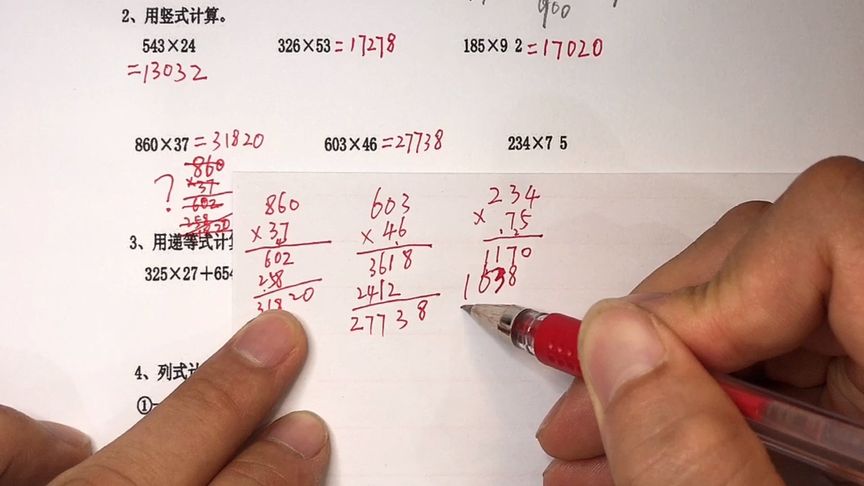 900
2、用竖式计算。
543×24 326×53=17278 185×9 2=17020
=13032
860×37=31820 603×46=27738 234×7 5
860
×37
602
258
?
860 603 234
×37 ×46 ×75
602 3618 1170
258 2412 1638
31820 27738
3、用递等式计
325×27+654
4、列式计
①